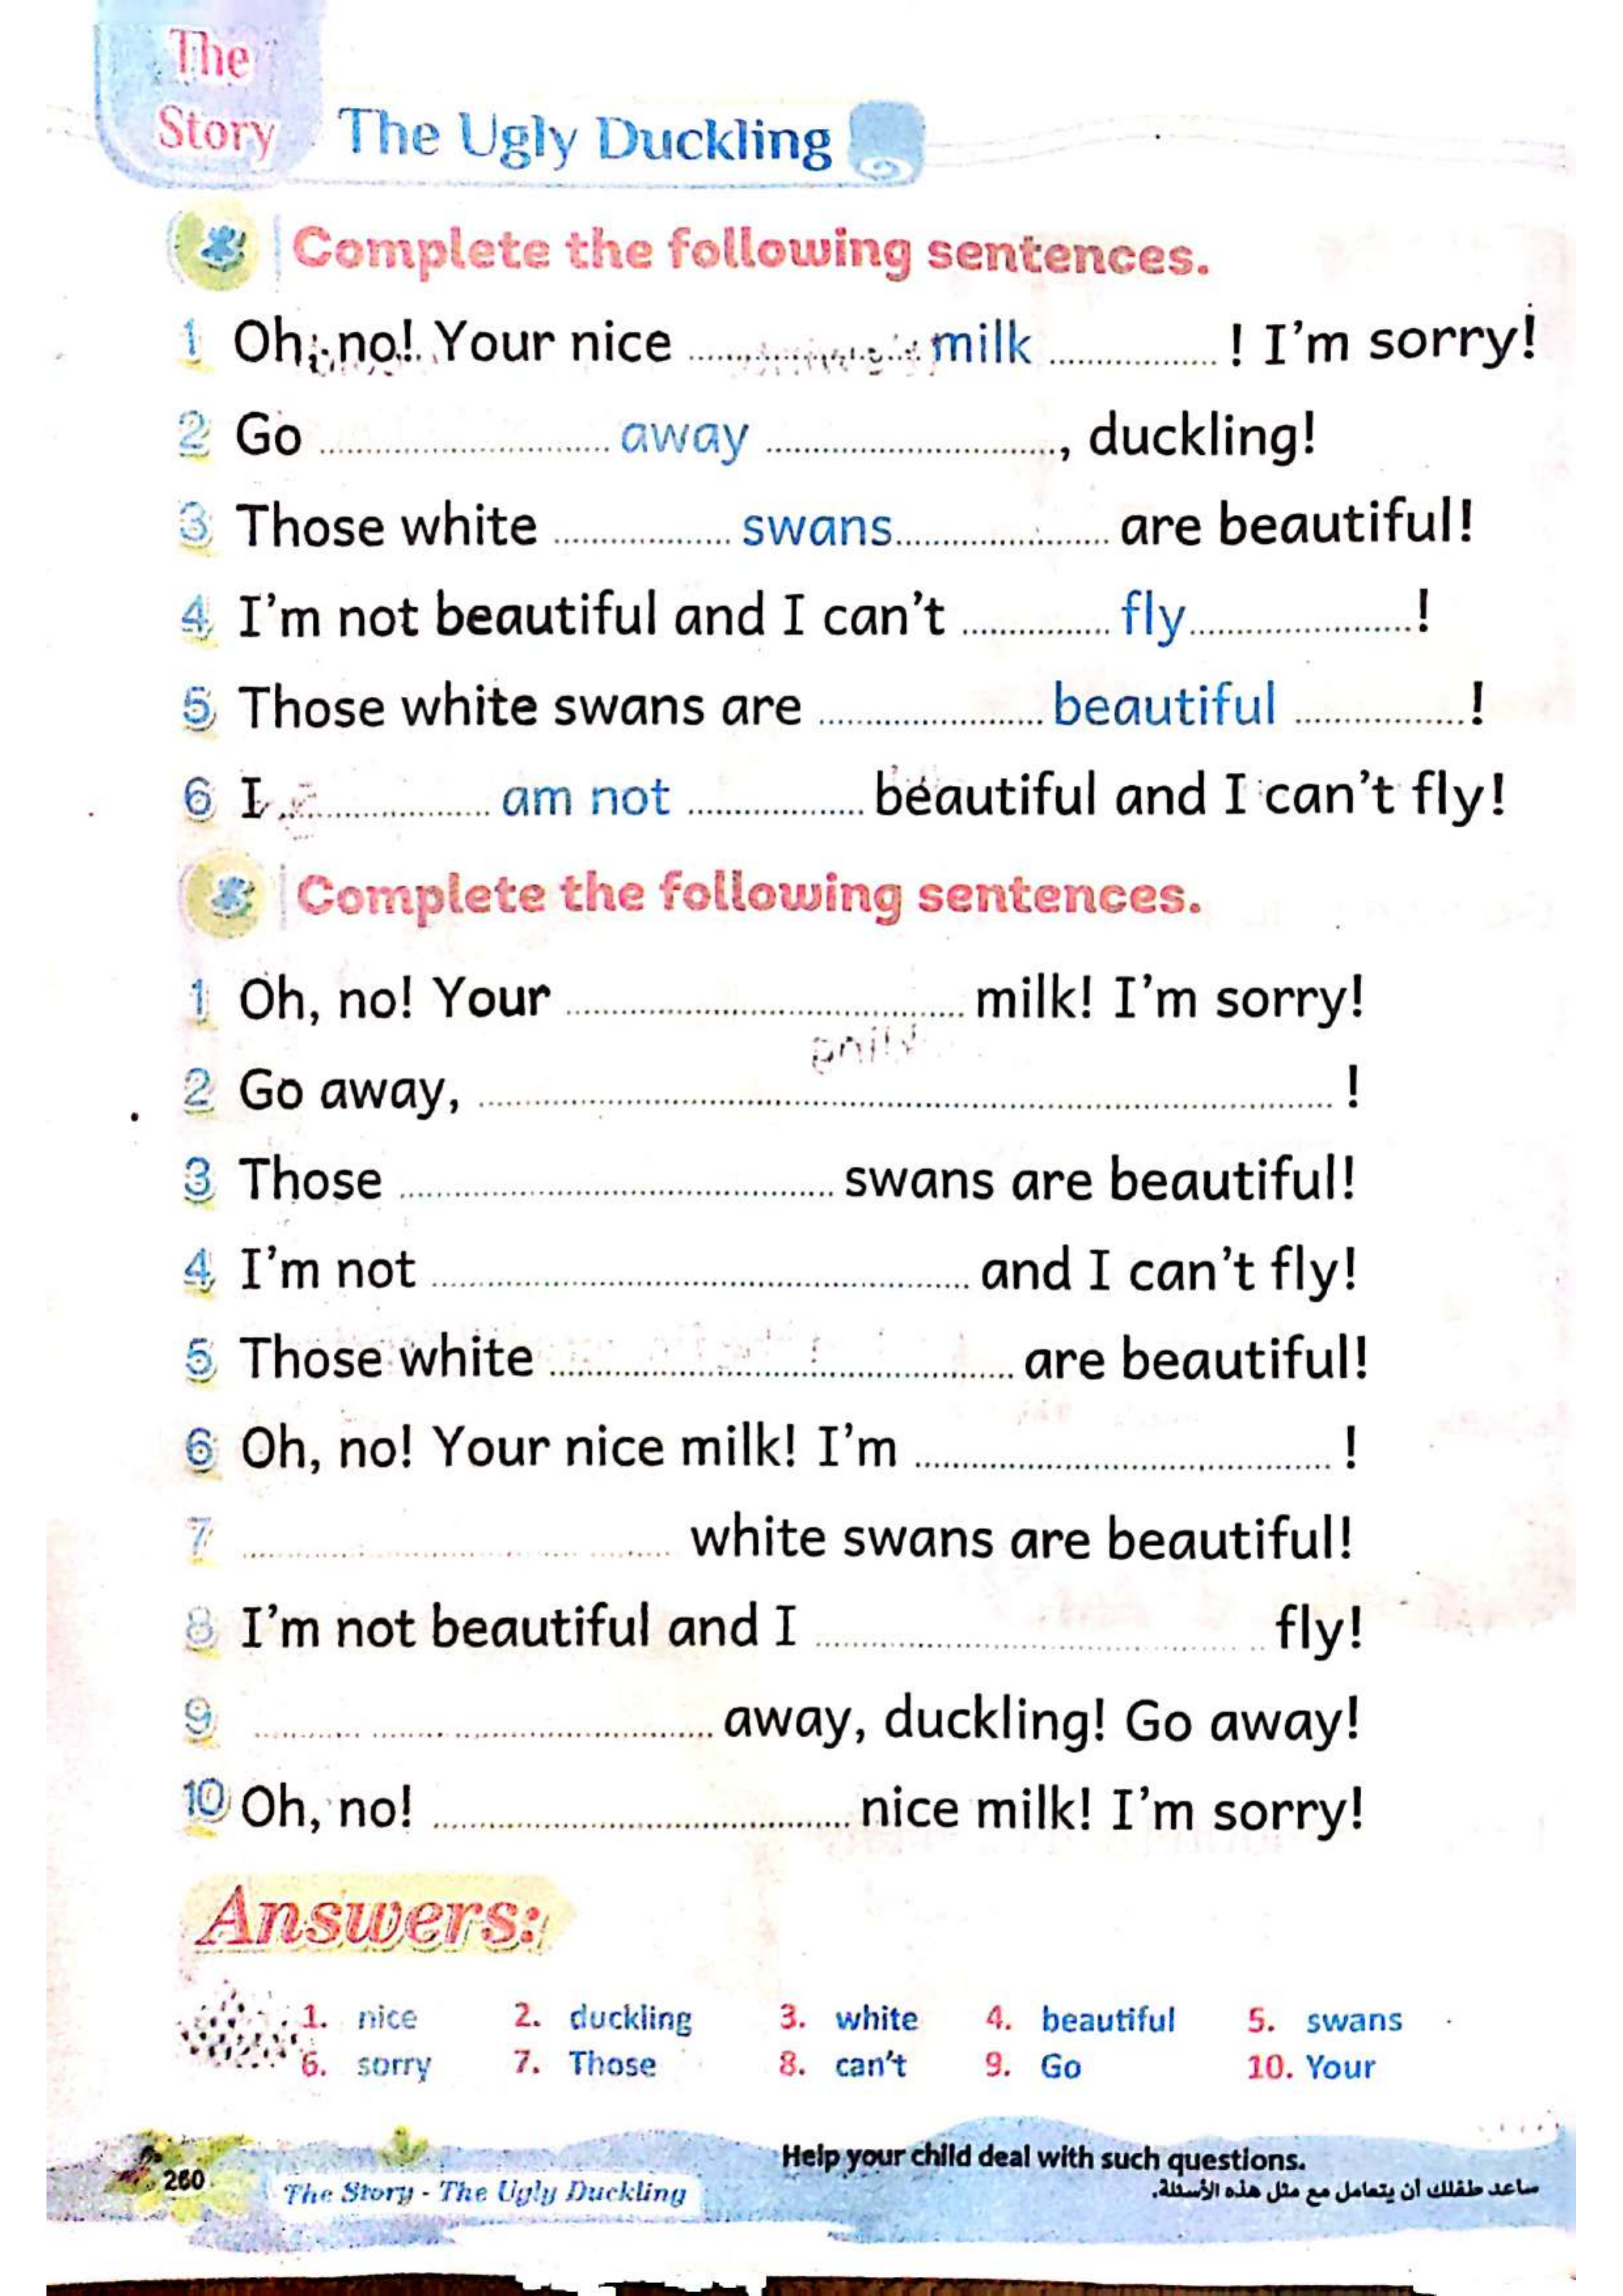 The
Story
The Ugly Duckling
Complete the following sentences.
1 Oh, no! Your nice ........ milk ........ ! I'm sorry!
2 Go ........ away ........, duckling!
3 Those white ........ swans ........ are beautiful!
4 I'm not beautiful and I can't ........ fly ........!
5 Those white swans are ........ beautiful ........!
6 I ........ am not ........ beautiful and I can't fly!
Complete the following sentences.
1 Oh, no! Your ........ milk! I'm sorry!
2 Go away, ........ !
3 Those ........ swans are beautiful!
4 I'm not ........ and I can't fly!
5 Those white ........ are beautiful!
6 Oh, no! Your nice milk! I'm ........ !
7 ........ white swans are beautiful!
8 I'm not beautiful and I ........ fly!
9 ........ away, duckling! Go away!
10 Oh, no! ........ nice milk! I'm sorry!
Answers:
1. nice 2. duckling 3. white 4. beautiful 5. swans
6. sorry 7. Those 8. can't 9. Go 10. Your
Help your child deal with such questions.
ساعد طفلك أن يتعامل مع مثل هذه الأسئلة.
260 The Story - The Ugly Duckling